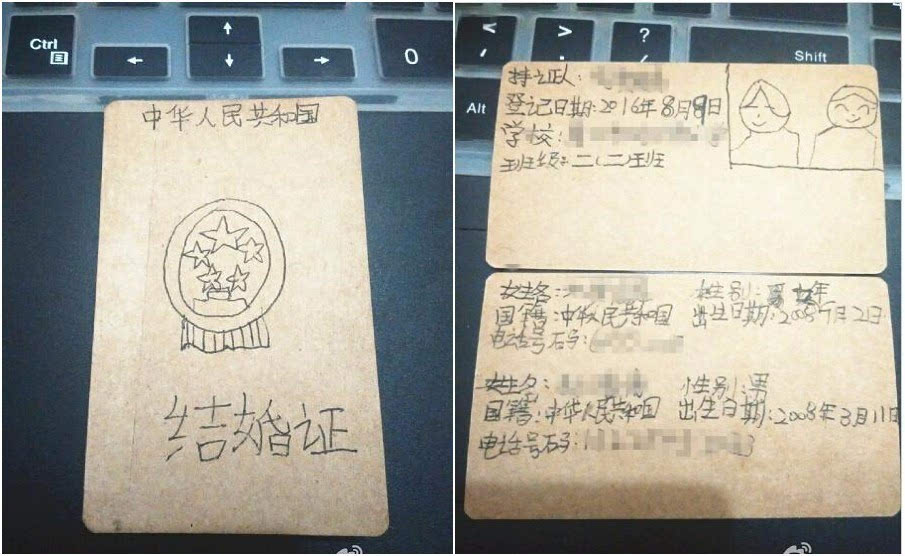 Ctrl
0
中华人民共和国
结婚证
<
>
?
,
.
/
Shift
Alt
持证人:
登记日期:2016年8月9日
学校:
班级:二(二)班
姓名: 性别:
国籍:中华人民共和国 出生日期:2008年7月2日
电话号码:
姓名: 性别:男
国籍:中华人民共和国 出生日期:2008年3月11日
电话号码: